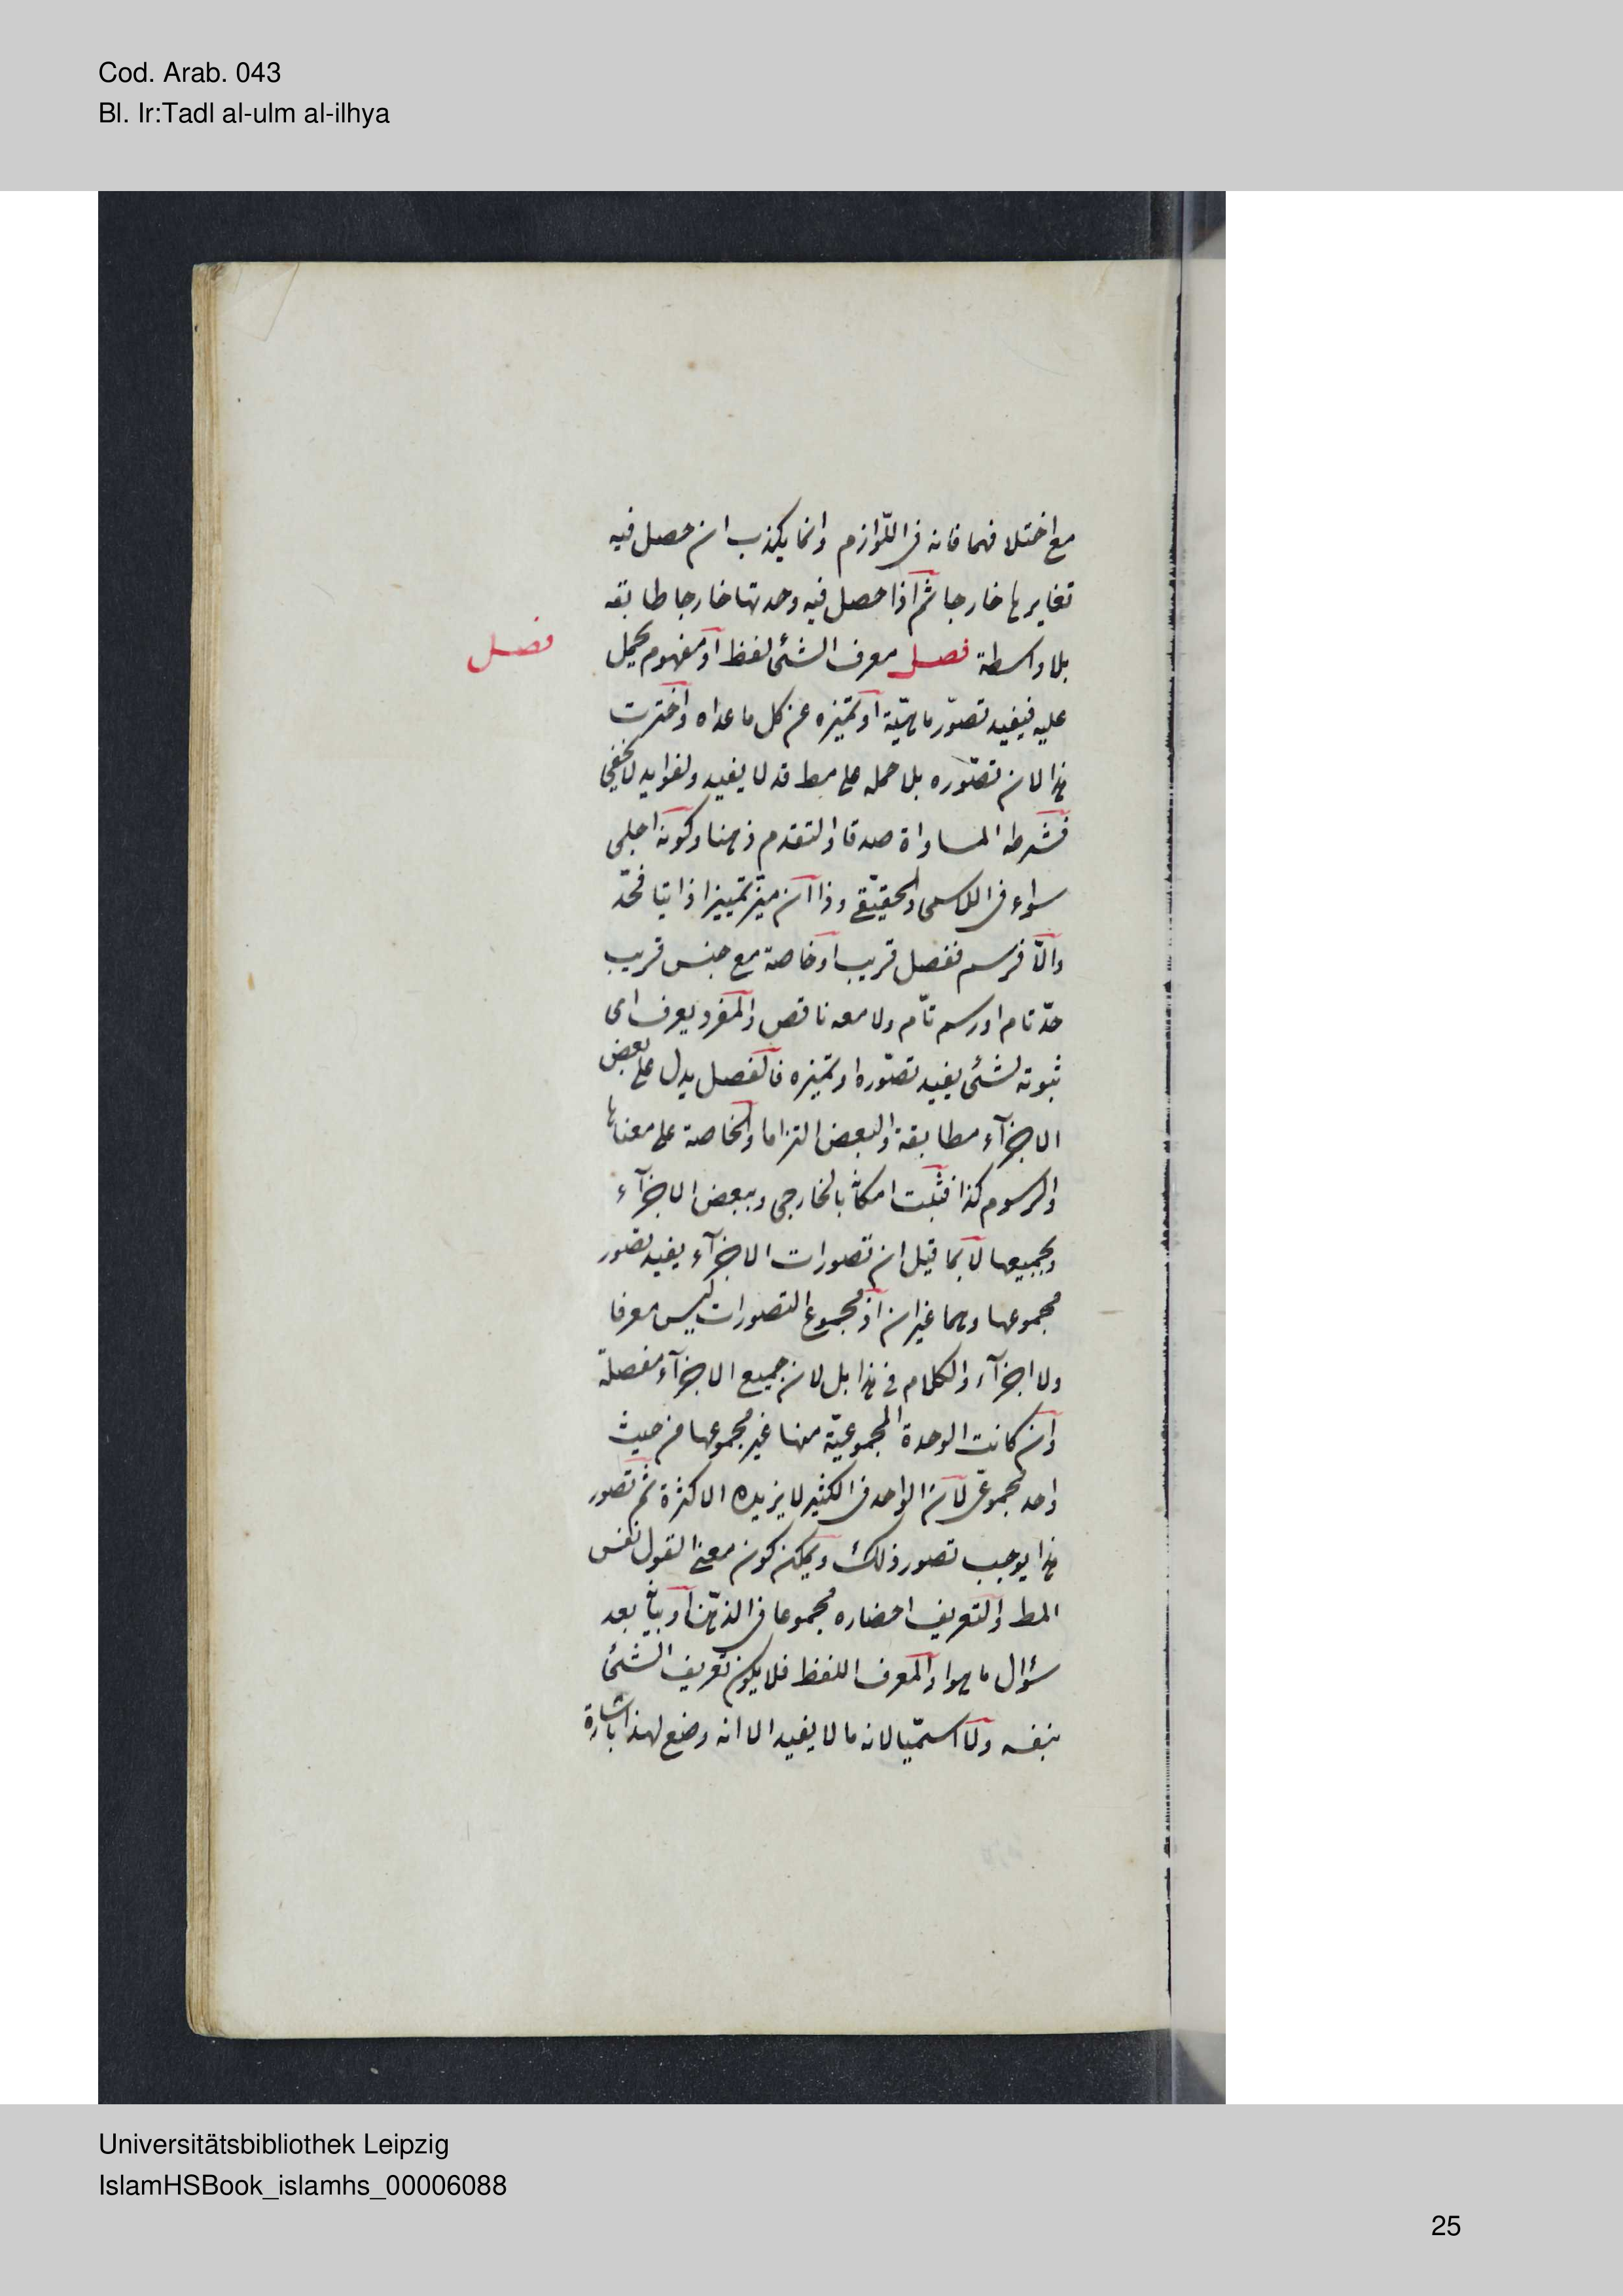 Cod. Arab. 043
Bl. Ir:Tadl al-ulm al-ilhya
مع اختلافهما فانه في اللوازم وانما يكذب ان حصل فيه
تغايرها خارجا ثم اذا حصل فيه وحدتها خارجا طابقه
بلا واسطة فصل معرف الشئ لفظ او مفهوم يحمل
فصل
عليه فيفيد تصوّر ماهيّة او تميّزه عن كل ما عداه واخترت
هذا لان تصوّره بلا حمله على مط قد لا يفيد ولفوايد لا تخفى
فشرطه المساواة صدقا والتقدم ذهنا وكونه اجلى
سواء في الاسمى والحقيقي وذا ان ميّز تمييزا ذاتيا فحدّ
والّا فرسم ففصل قريب او خاصة مع جنس قريب
حدّ تام او رسم تامّ ولا معه ناقص والمفرد يعرف اى
ثبوته لشئ يفيد تصوّره او تميّزه فالفصل يدل على بعض
الاجزآء مطابقة والبعض التزاما والخاصة على معناها
والرسوم كذا فثبت امكانه بالخارجى وببعض الاجزآء
وبجميعها لا بما قيل ان تصورات الاجزآء يفيد تصور
مجموعها وهما غيران اذ مجموع التصورات ليس معرفا
ولا اجزآء والكلام في هذا بل لان جميع الاجزآء مفصلة
وان كانت الوحدة المجموعيّة منها غير مجموعها من حيث
واحد مجموعىّ لان الواحد في الكثير لا يزيده الا كثرة ثم تصور
هذا يوجب تصور ذلك ويمكن كون معنى القول نفس
المط والتعريف احضاره مجموعا في الذهن او بيانه بعد
سؤال ما هو او المعرف اللفظ فلا يكون تعريف الشئ
بنفسه ولا اسميّا لانه ما لا يفيد الا انه وضع لهذا باشارة
Universitätsbibliothek Leipzig
IslamHSBook_islamhs_00006088
25